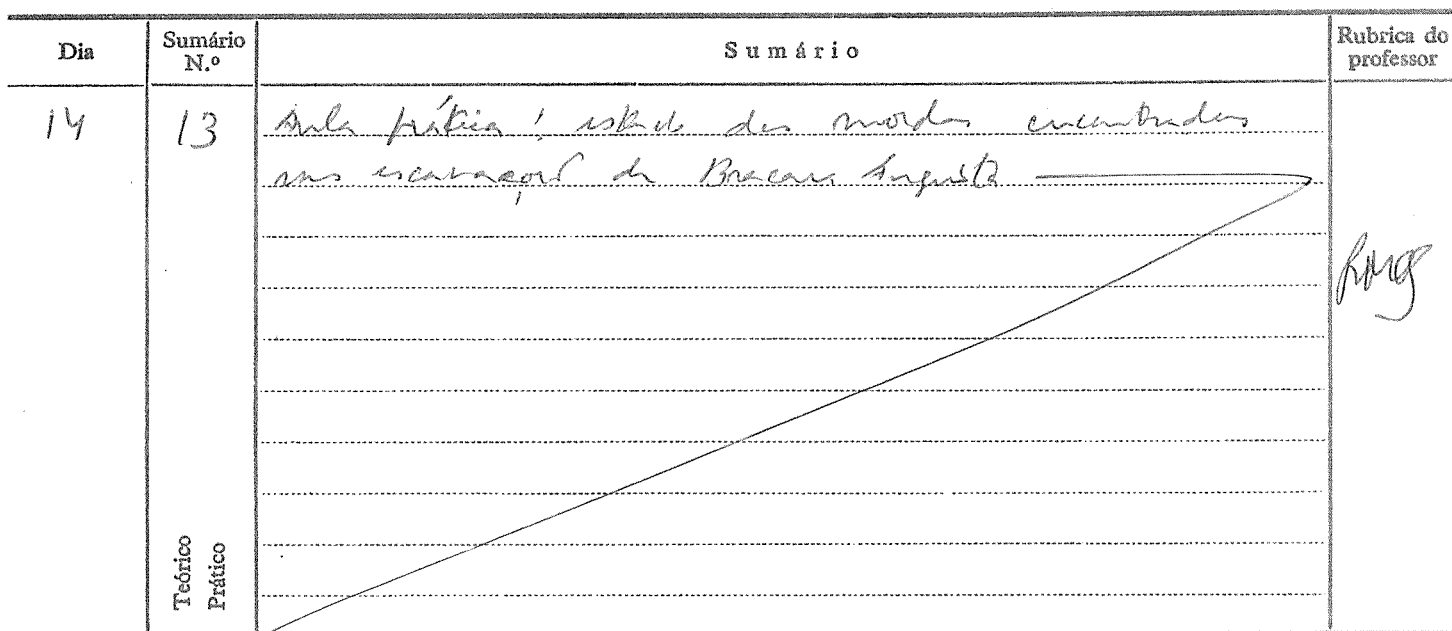 Dia
Sumário N.º
Sumário
Rubrica do professor
14
13
Aula prática: estudo das moedas encontradas
nas escavações de Bracara Augusta
Teórico
Prático